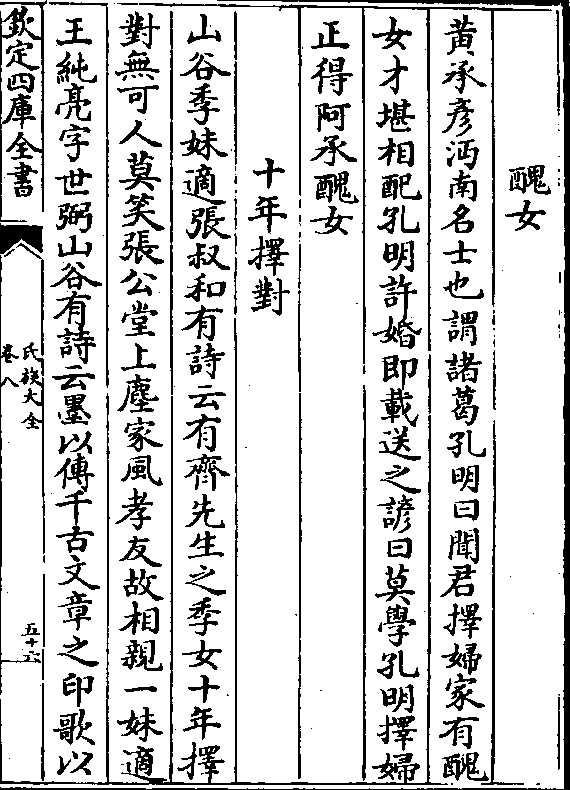 醜女
黄承彦沔南名士也謂諸葛孔明曰聞君擇婦家有醜
女才堪相配孔明許婚即載送之諺曰莫學孔明擇婦
正得阿承醜女
十年擇對
山谷季妹適張叔和有詩云有齊先生之季女十年擇
對無可人莫笑張公堂上塵家風孝友故相親一妹適
王純亮字世弼山谷有詩云墨以傳千古文章之印歌以
欽定四庫全書
氏族大全
卷八
五十六